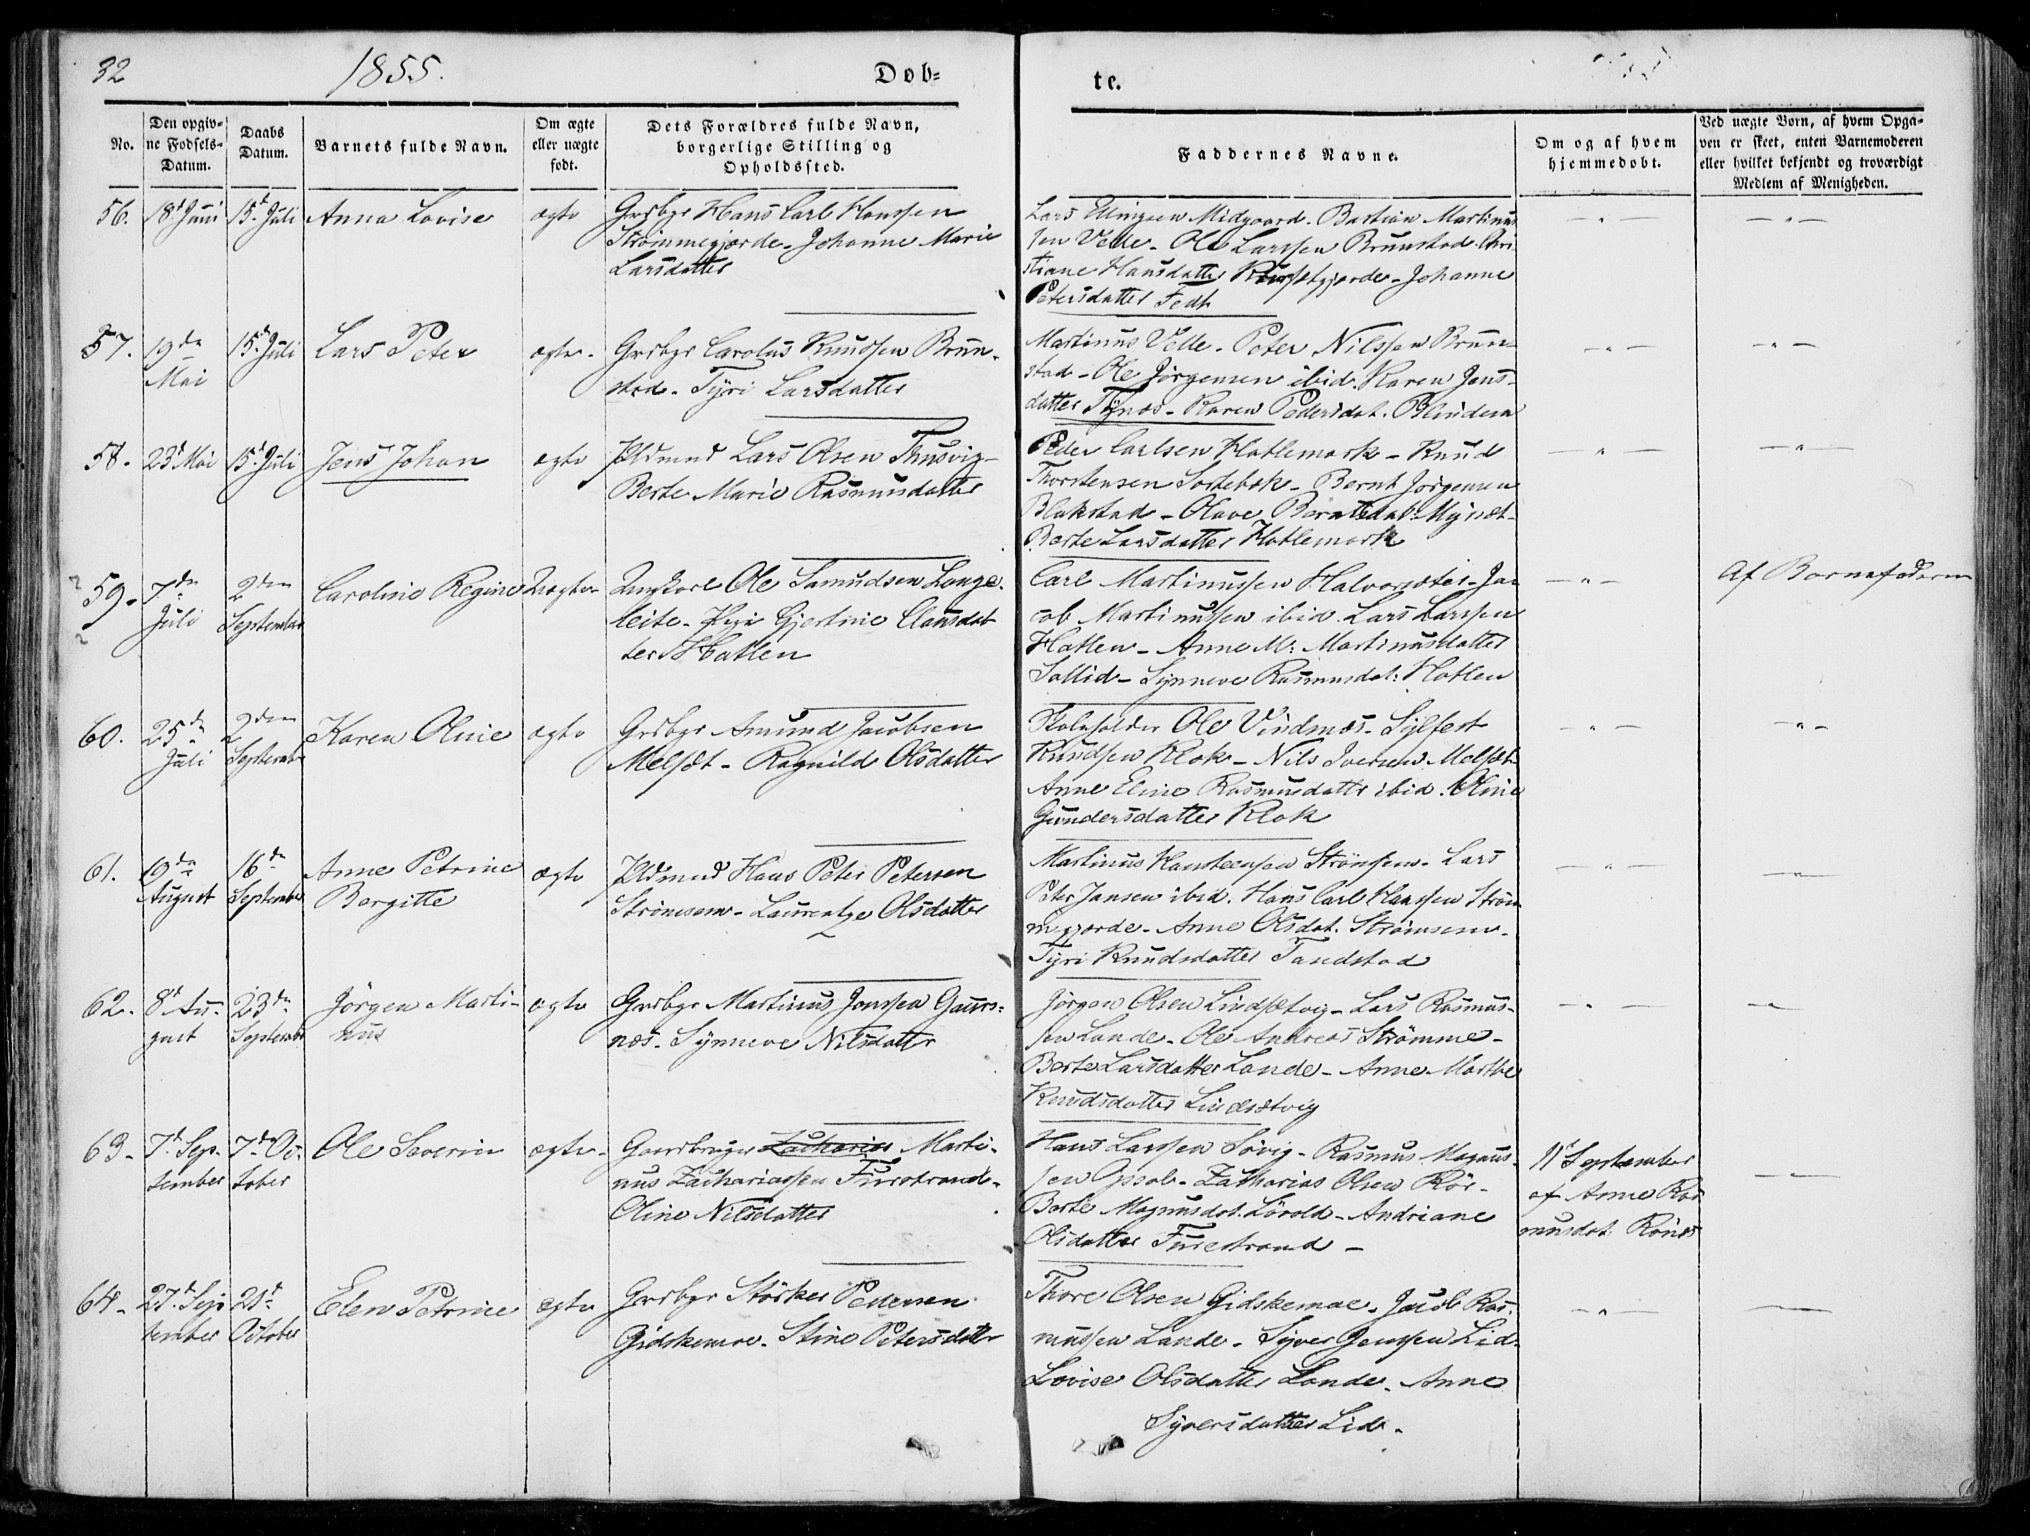 32
1855.
Døb-
te.
No.
Den opgiv-
ne Fødsels-
Datum.
Daabs
Datum.
Barnets fulde Navn.
Om ægte
eller uægte
født.
Dets Forældres fulde Navn,
borgerlige Stilling og
Opholdssted.
Faddernes Navne.
Om og af hvem
hjemmedøbt.
Ved uægte Børn, af hvem Opga-
ven er skeet, enten Barnemoderen
eller hvilket bekjendt og troværdigt
Medlem af Menigheden.
56.
18d Juni
15d Juli
Anna Lovise
ægte
Grdbgr Hans Carl Hanssen
Strømmegjærde - Johanne Marie
Larsdatter
Lars Ellingsen Midgaard. Bastian Martinus-
sen Velle - Ole Larssen Brunstad. Chri
stiane Hansdatter - Johanne
Petersdatter Fedt
57.
19de
Mai
15d Juli
Lars Peter
ægte -
Grdbgr Carolus Knudssen Brun-
stad - Tyri Larsdatter
Martinus Velle - Peter Nilssen Brun-
stad - Ole Jørgensen ibid. Karen Jens-
datter Tynes - Karen Pedersdat. Blindem
58.
23d Mai
15d Juli
Jens Johan
ægte
Pldmnd Lars Olsen Thusvig -
Berte Marie Rasmusdatter
Peder Carlsen Hatlemark - Knud
Thorstensen Sortebak - Bernt Jørgensen
Blakstad - Olave Berntsdat: Myrset -
Berte Larsdatter Hatlemark
59.
7de
Juli
2den
September
Caroline Regine
Uægte
Ungkarl Ole Samudsen Lange-
leite - Pige Gjertine Clausdat
ter Hatlen
Carl Martinussen Halvorsæter - Ja-
cob Martinussen ibid. Lars Larssen
Hatlen - Anne M: Martinusdatter
Sollid - Synneve Rasmusdat: Hatlen
Af Barnefaderen
60.
25de
Juli
2den
September
Karen Oline
ægte
Grdbgr Amund Jacobsen
Melsæt - Ragnilde Olsdatter
Skoleholder Ole Vindnæs - Sylfest
Knudsen Klok - Nils Iversen Melsæt
Anne Eline Rasmusdatter ibid. Oline
Gundersdatter Klok
61.
19de
August
16de
September
Anne Petrine
Bergitte
ægte
Pldmnd Hans Peter Petersen
Strømsem - Laurentze Olsdatter
Martinus Hansteensen Strømsem - Lars
Peter Jansen ibid. Hans Carl Hanssen Strøm
megjærde - Anne Olsdat. Strømsem -
Tyri Knudsdatter Tandstad
62.
8d Au-
gust
23de
September
Jørgen Marti-
nus
ægte
Grdbgr Martinus Jonssen Gaars-
næs - Synneve Nilsdatter
Jørgen Olsen Lindsætvig - Lars Rasmus-
sen Lande - Ole Andreas Strømme -
Berte Larsdatter Lande - Anne Marthe
Knudsdatter Lindsætvig
63 -
7d Sep-
tember
7de Oc-
tober
Ole Severin
ægte -
Gaardbruger Zacharias Marti-
nus Zachariassen Furstrand -
Oline Nilsdatter
Hans Larssen Søvig - Rasmus Magnus-
sen Opsal - Zacharias Olsen Rør -
Berte Magnusdat. - Andriane
Olsdatter Furestrand -
11d September
af Anne Ras
musdat: Rønes
64 -
27d Sep-
tember
21d
October
Elen Petrine
ægte
Grdbgr Størker Pedersen
Gidskemoe - Stine Petersdatter
Thore Olsen Gidskemoe - Jacob Ras-
mussen Lande - Syver Jenssen Lid -
Lovise Olsdatter Lande - Anne
Syversdatter Lid -